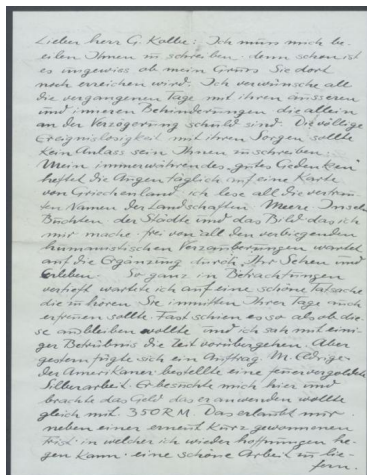 Lieber Herr G. Kolbe: Ich muss mich be-
eilen Ihnen zu schreiben, denn schon ist
es ungewiss ob mein Gruss Sie dort
noch erreichen wird. Ich verwünsche all
die vergangenen Tage mit ihren äusseren
und inneren Behinderungen die allein
an der Verzögerung schuld sind. Die völlige
Ereignislosigkeit mit ihren Sorgen sollte
kein Anlass sein Ihnen zu schreiben.
Mein immerwährendes gutes Gedenken
heftet die Augen täglich auf eine Karte
von Griechenland, ich lese all die vertrau-
ten Namen der Landschaften Meere Inseln
Buchten der Städte und das Bild das ich
mir mache frei von all den verbiegenden
humanistischen Verzauberungen wartet
auf die Ergänzung durch Ihr Sehen und
Erleben. So ganz in Betrachtungen
vertieft wartete ich auf eine schöne Tatsache
die zu hören Sie inmitten Ihrer Tage auch
erfreuen sollte. Fast schien es so als ob die-
se ausbleiben wollte und ich sah mit eini-
ger Betrübnis die Zeit vorübergehen. Aber
gestern fügte sich ein Auftrag. M.
der Amerikaner bestellte eine feuervergoldete
Silberarbeit. Er besuchte mich hier und
brachte das Geld das er anwenden wollte
gleich mit 350 RM. Das erlaubt mir
neben einer erneut kurz gewonnenen
Frist in welcher ich wieder Hoffnungen he-
gen kann, eine schöne Arbeit zu lie-
fern.